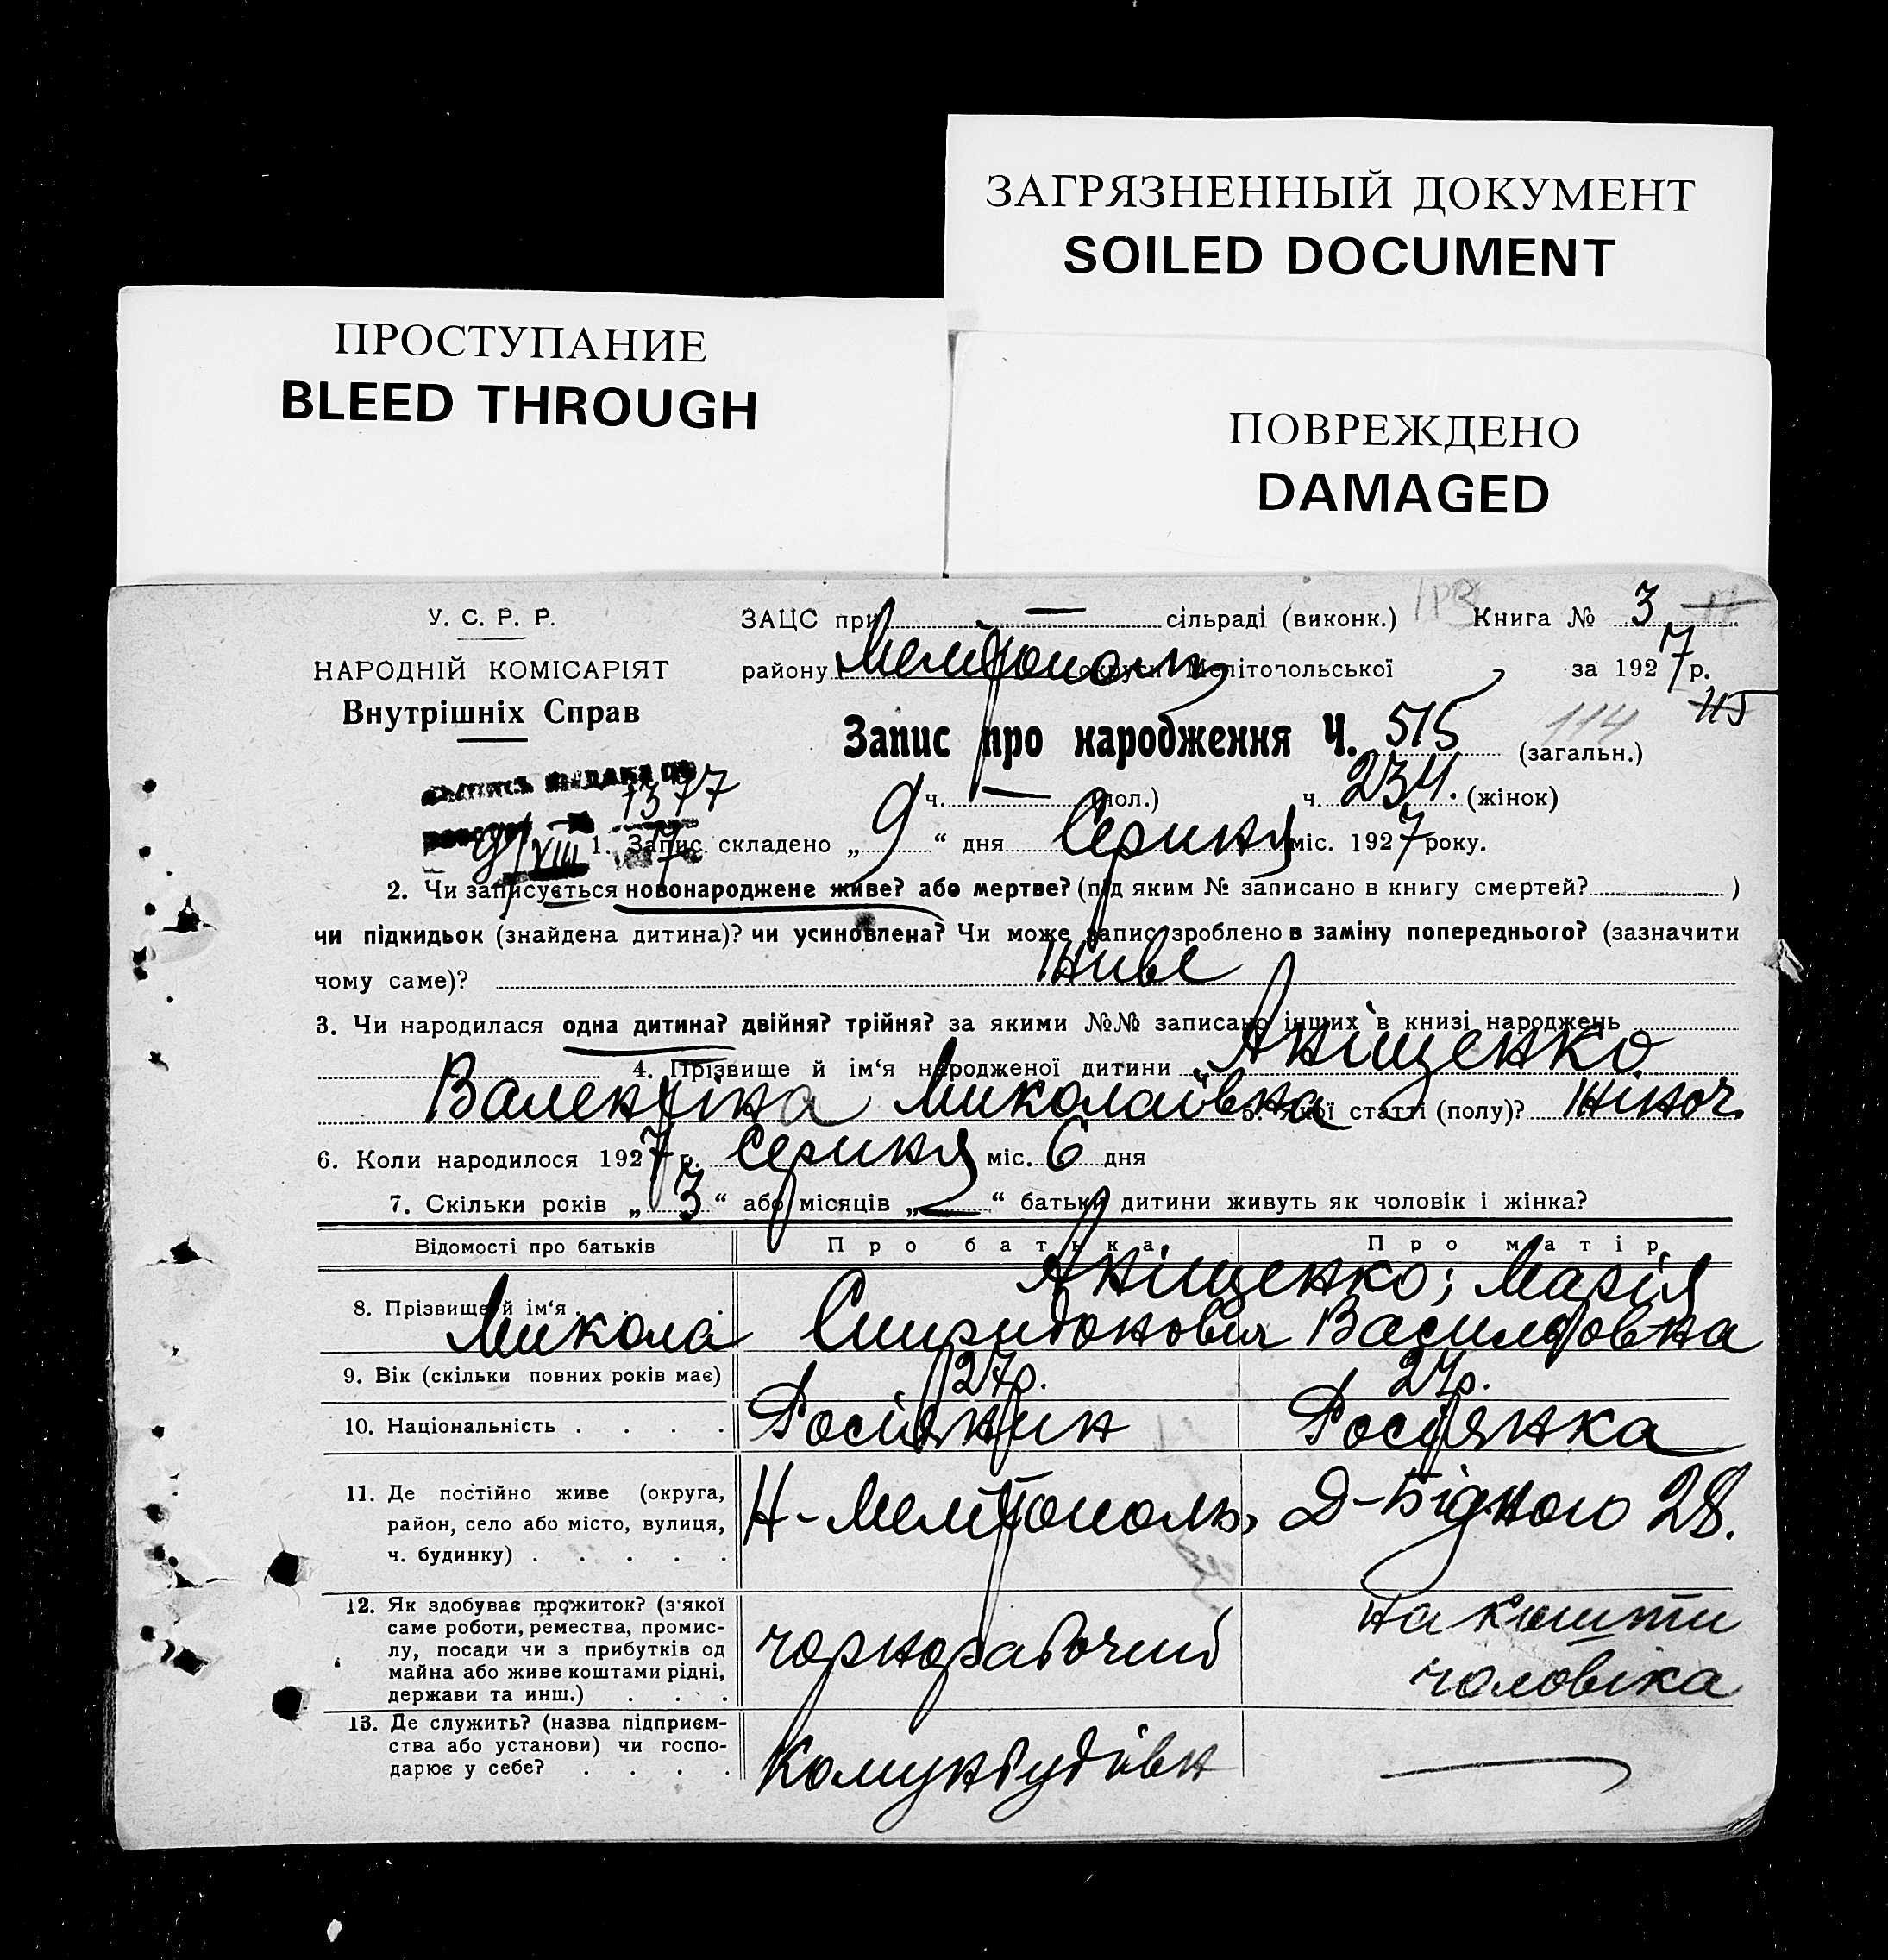 ЗАГРЯЗНЕННЫЙ ДОКУМЕНТ
SOILED DOCUMENT
ПРОСТУПАНИЕ
BLEED THROUGH
ПОВРЕЖДЕНО
DAMAGED
У. С. Р. Р.
НАРОДНІЙ КОМІСАРІЯТ
Внутрішніх Справ
ЗАЦС при — сільраді (виконк.) Книга № 3
району Мелітополь округи Мелітопольської за 1927 р.
115
Запис про народження Ч. 515 (загальн.) 114
ч. — (пол.) ч. 234. (жінок)
1377
9/VIII 7
1. Запис складено „ 9 “ дня Серпня міс. 1927 року.
2. Чи записується новонароджене живе? або мертве? (під яким № записано в книгу смертей? )
чи підкидьок (знайдена дитина)? чи усиновлена? Чи може запис зроблено в заміну попереднього? (зазначити
чому саме)? Живе
3. Чи народилася одна дитина? двійня? трійня? за якими №№ записано інших в книзі народжень
4. Прізвище й ім‘я народженої дитини Аніщенко
Валентіна Миколаївна 5. Якої статті (полу)? жіноч.
6. Коли народилося 1927 р. Серпня міс. 6 дня
7. Скільки років „ 3 “ або місяців „ — “ батьки дитини живуть як чоловік і жінка?
Відомості про батьків Про батька Про матір
8. Прізвище й ім‘я . . . . Аніщенко; Марія
Микола Спиридонович Васильовна
9. Вік (скільки повних років має) 27р. 27р.
10. Національність . . . . Росіянин Росіянка
11. Де постійно живе (округа,
район, село або місто, вулиця,
ч. будинку) . . . . .
Н-Мелітополь, Д-Бідного 28.
12. Як здобуває прожиток? (з'якої
саме роботи, ремества, промис-
лу, посади чи з прибутків од
майна або живе коштами рідні,
держави та инш.) . . .
чорнорабочий
на кошти
чоловіка
13. Де служить? (назва підприєм-
ства або установи) чи госпо-
дарює у себе? . . . .
Комунбудівн —